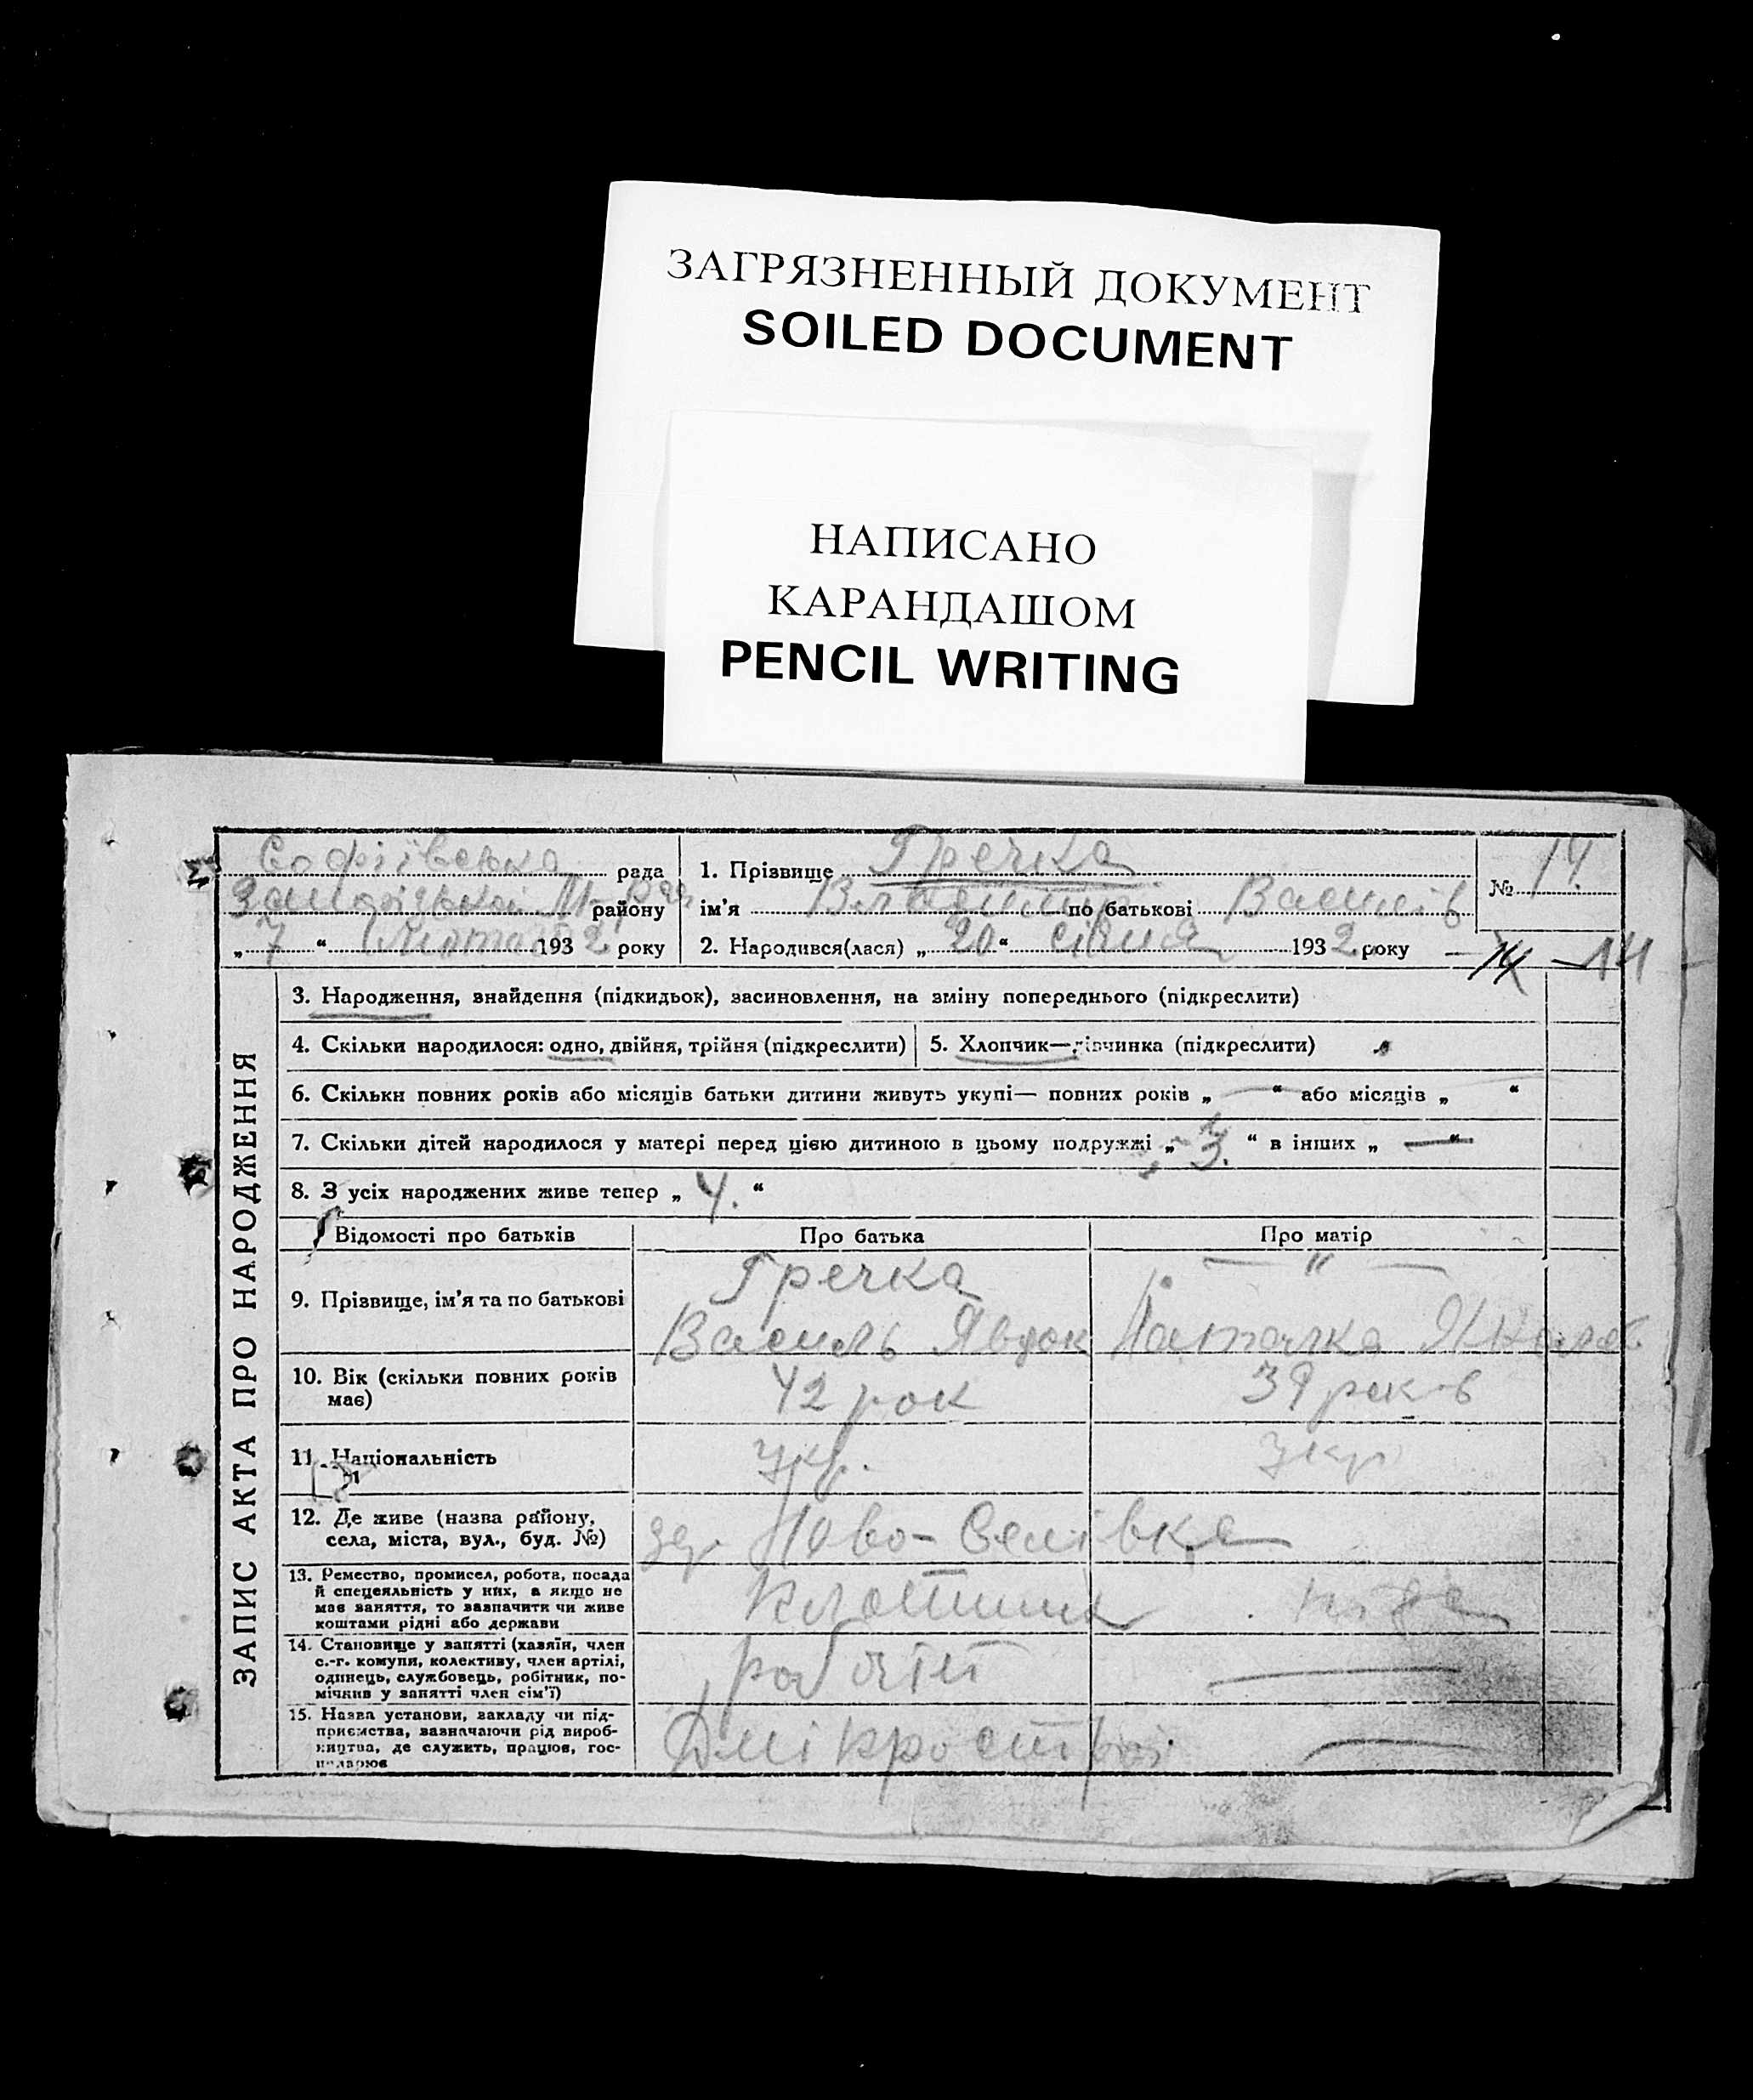 ЗАГРЯЗНЕННЫЙ ДОКУМЕНТ
SOILED DOCUMENT
НАПИСАНО
КАРАНДАШОМ
PENCIL WRITING
ЗАПИС АКТА ПРО НАРОДЖЕННЯ
Софіївська рада
району
„ 7 “ Лютого 1932 року
1. Прізвище Гречка
ім'я Владимир по батькові Васильів
2. Народився(лася) „ 20 “ січня 1932 року
№ 14.
14 — 14
3. Народження, знайдення (підкидьок), засиновлення, на зміну попереднього (підкреслити)
4. Скільки народилося: одно, двійня, трійня (підкреслити)
5. Хлопчик—дівчинка (підкреслити)
6. Скільки повних років або місяців батьки дитини живуть укупі— повних років „ — “ або місяців „ “
7. Скільки дітей народилося у матері перед цією дитиною в цьому подружжі „ 3. “ в інших „ — “
8. З усіх народжених живе тепер „ 4. “
Відомості про батьків Про батька Про матір
9. Прізвище, ім'я та по батькові
Гречка — " —
Василь Явдок
10. Вік (скільки повних років
має)
42 рок 39 рок-в
11. Національність укр. укр
12. Де живе (назва району,
села, міста, вул., буд. №)
Ново-Селівка
13. Ремество, промисел, робота, посада
й спецеяльність у них, а якщо не
має заняття, то зазначити чи живе
коштами рідні або держави
14. Становище у занятті (хазяїн, член
с.-г. комуни, колективу, член артілі,
одинець, службовець, робітник, по-
мічник у занятті член сім'ї)
робочій —
15. Назва установи, закладу чи під-
приємства, зазначаючи рід вироб-
ництва, де служить, працює, гос-
подарює
Дніпрострой —